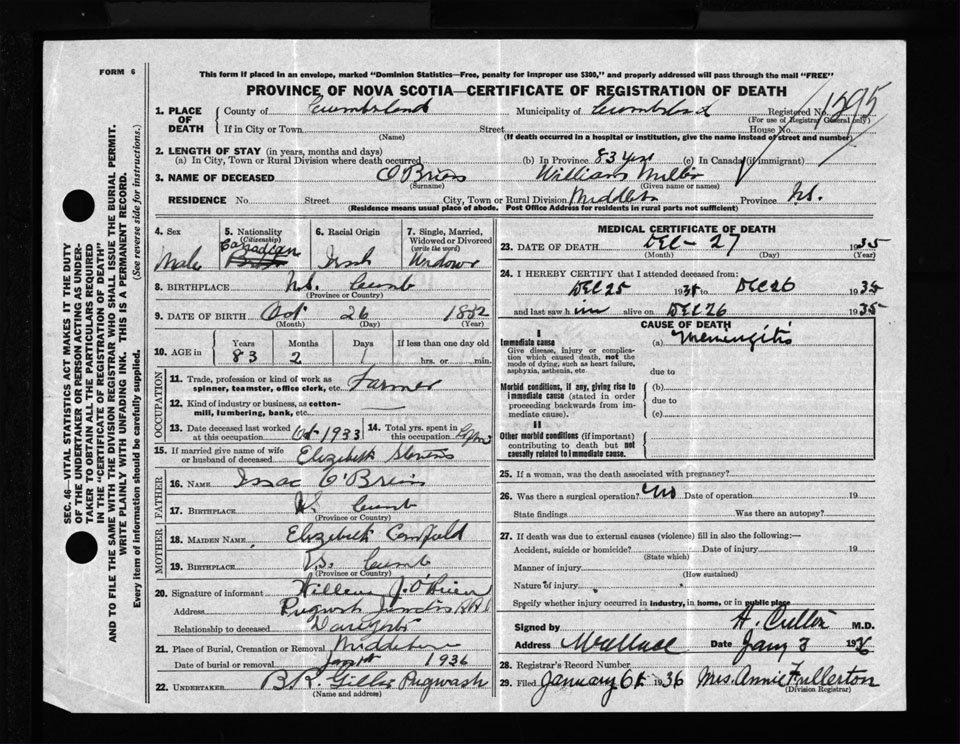 FORM 6
This form if placed in an envelope, marked "Dominion Statistics—Free, penalty for improper use $300," and properly addressed will pass through the mail "FREE"
PROVINCE OF NOVA SCOTIA—CERTIFICATE OF REGISTRATION OF DEATH
1. PLACE OF DEATH County of Cumberland Municipality of Cumberland Registered No. 1295
(For use of Registrar General only)
If in City or Town Street House No.
(Name) (If death occurred in a hospital or institution, give the name instead of street and number)
2. LENGTH OF STAY (in years, months and days)
(a) In City, Town or Rural Division where death occurred (b) In Province 83 yrs (c) In Canada (if immigrant)
3. NAME OF DECEASED O'Brien William
(Surname) (Given name or names)
RESIDENCE No. Street City, Town or Rural Division Middleboro Province N.S.
(Residence means usual place of abode. Post Office Address for residents in rural parts not sufficient)
4. Sex 5. Nationality (Citizenship) 6. Racial Origin 7. Single, Married, Widowed or Divorced (write the word)
Male Canadian Irish Widower
8. BIRTHPLACE N.S. Cumb
(Province or Country)
9. DATE OF BIRTH Oct 26 1852
(Month) (Day) (Year)
10. AGE in Years Months Days If less than one day old
83 2 1 hrs. or min.
OCCUPATION
11. Trade, profession or kind of work as spinner, teamster, office clerk, etc. Farmer
12. Kind of industry or business, as cotton-mill, lumbering, bank, etc.
13. Date deceased last worked at this occupation Oct 1933 14. Total yrs. spent in this occupation
15. If married give name of wife or husband of deceased Elizabeth Stevens
FATHER
16. NAME Issac O'Brien
17. BIRTHPLACE N.S. Cumb
(Province or Country)
MOTHER
18. MAIDEN NAME Elizabeth Canfield
19. BIRTHPLACE N.S. Cumb
(Province or Country)
20. Signature of informant J. O'Brien
Address Pugwash Junction R.R.1
Relationship to deceased
21. Place of Burial, Cremation or Removal Middleboro
Date of burial or removal Jan 1st 1936
22. UNDERTAKER Pugwash
(Name and address)
MEDICAL CERTIFICATE OF DEATH
23. DATE OF DEATH DEC - 27 1935
(Month) (Day) (Year)
24. I HEREBY CERTIFY that I attended deceased from:
DEC 25 1935 to DEC 26 1935
and last saw him alive on DEC 26 1935
CAUSE OF DEATH
I
Immediate cause (a) Meningitis
Give disease, injury or complication which caused death, not the mode of dying, such as heart failure, asphyxia, asthenia, etc.
due to
Morbid conditions, if any, giving rise to immediate cause (stated in order proceeding backwards from immediate cause).
(b)
due to
(c)
II
Other morbid conditions (if important) contributing to death but not causally related to immediate cause.
25. If a woman, was the death associated with pregnancy?
26. Was there a surgical operation? No Date of operation 19
State findings Was there an autopsy?
27. If death was due to external causes (violence) fill in also the following:—
Accident, suicide or homicide? Date of injury 19
(State which)
Manner of injury
(How sustained)
Nature of injury
Specify whether injury occurred in industry, in home, or in public place
Signed by M.D.
Address Wallace Date Jany 3 1936
28. Registrar's Record Number
29. Filed January 6th 1936 Mrs. Annie Fullerton
(Division Registrar)
SEC. 46—VITAL STATISTICS ACT MAKES IT THE DUTY
OF THE UNDERTAKER OR PERSON ACTING AS UNDER-
TAKER TO OBTAIN ALL THE PARTICULARS REQUIRED
IN THE "CERTIFICATE OF REGISTRATION OF DEATH"
AND TO FILE THE SAME WITH THE DIVISION REGISTRAR WHO SHALL ISSUE THE BURIAL PERMIT.
WRITE PLAINLY WITH UNFADING INK. THIS IS A PERMANENT RECORD.
Every item of information should be carefully supplied. (See reverse side for instructions.)